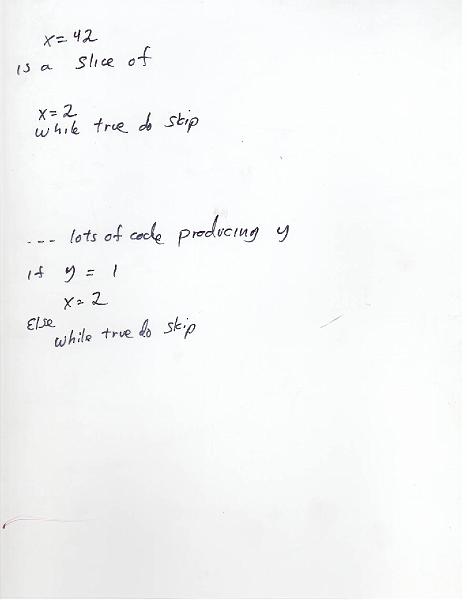 x=42
is a slice of
x=2
while true do skip
--- lots of code producing y
if y = 1
x=2
Else
while true do skip